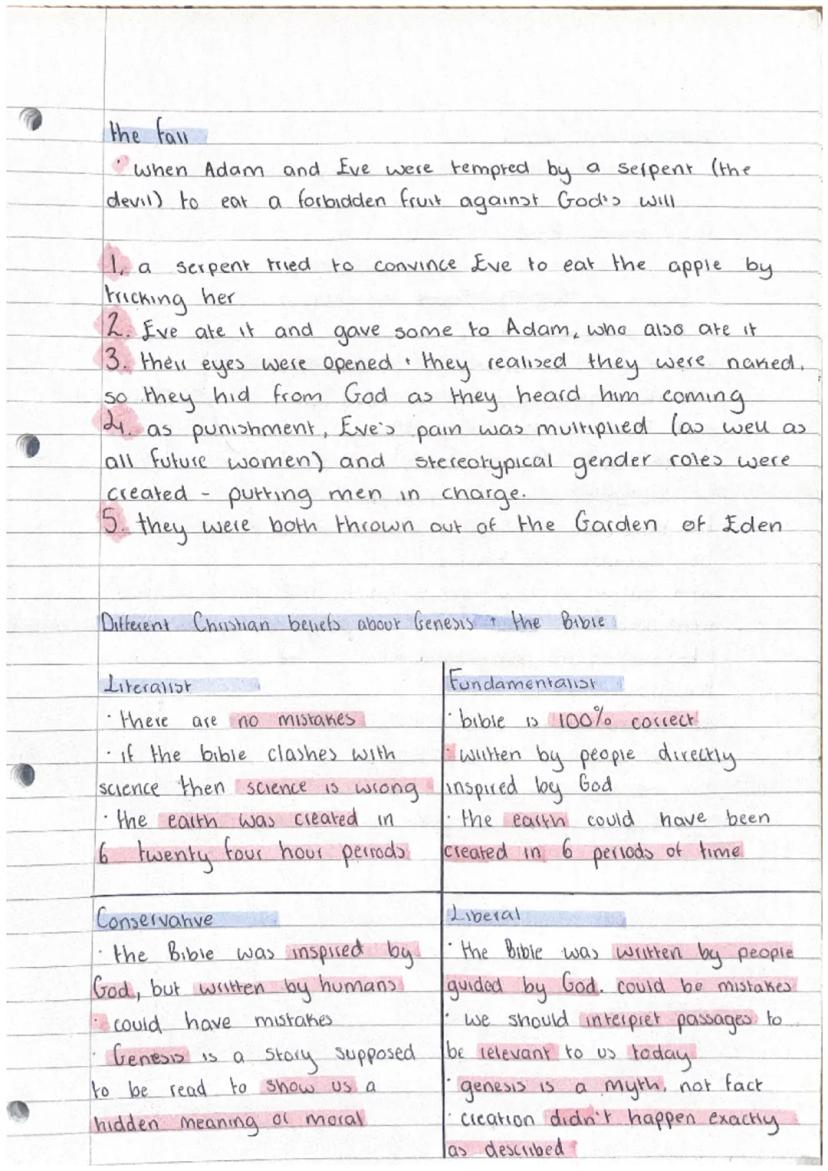 the fall
· when Adam and Eve were tempted by a serpent (the
devil) to eat a forbidden fruit against God's will
1. a serpent tried to convince Eve to eat the apple by
tricking her
2. Eve ate it and gave some to Adam, who also ate it
3. their eyes were opened + they realised they were naked.
so they hid from God as they heard him coming
4. as punishment, Eve's pain was multiplied (as well as
all future women) and stereotypical gender roles were
created - putting men in charge.
5. they were both thrown out of the Garden of Eden
Different Christian beliefs about Genesis + the Bible
Literalist
· there are no mistakes
· if the bible clashes with
science then science is wrong
· the earth was created in
6 twenty four hour periods
Fundamentalist
· bible is 100% correct
· written by people directly
inspired by God
· the earth could have been
created in 6 periods of time
Conservative
· the Bible was inspired by
God, but written by humans
· could have mistakes
· Genesis is a story supposed
to be read to show us a
hidden meaning or moral
Liberal
· the Bible was written by people
guided by God. could be mistakes
· we should interpret passages to
be relevant to us today
· genesis is a myth, not fact
· creation didn't happen exactly
as described